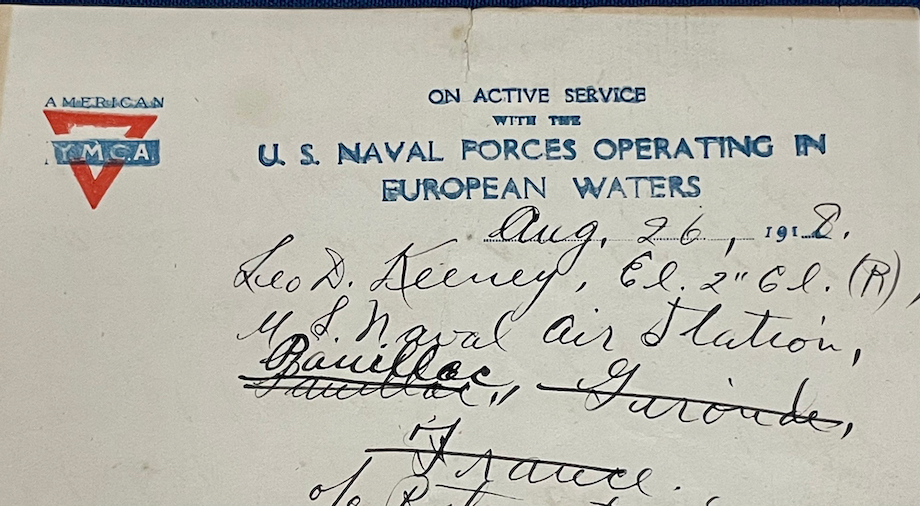 AMERICAN
YMCA
ON ACTIVE SERVICE
WITH THE
U. S. NAVAL FORCES OPERATING IN
EUROPEAN WATERS
Aug. 26, 1918.
Leo D. Keeney, El. 2" Cl. (R),
U. S. Naval Air Station,
Pauillac,
Pauillac, Gironde,
France.